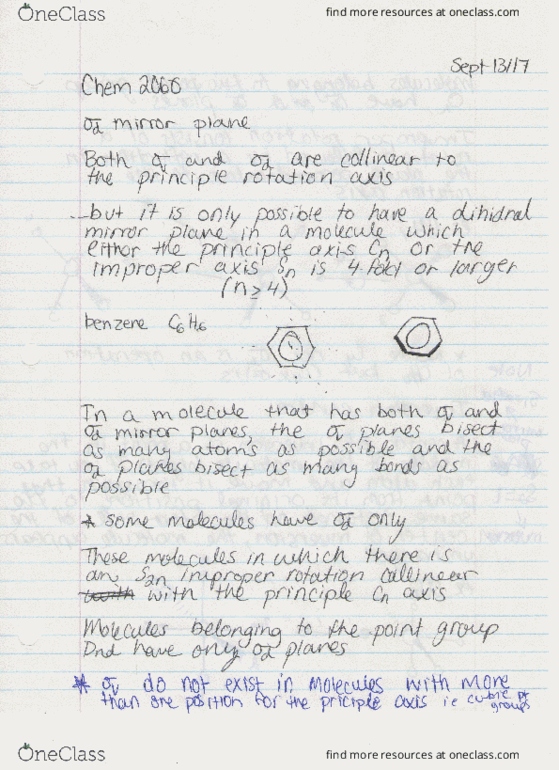 OneClass
find more resources at oneclass.com
Sept 13/17
Chem 2060
σd mirror plane
Both σv and σd are collinear to
the principle rotation axis
...but it is only possible to have a dihidral
mirror plane in a molecule which
either the principle axis Cn or the
improper axis Sn is 4 fold or larger
(n≥4)
benzene C6H6
In a molecule that has both σv and
σd mirror planes, the σv planes bisect
as many atoms as possible and the
σd planes bisect as many bonds as
possible
* some molecules have σd only
These molecules in which there is
an S2n improper rotation collinear
with with the principle Cn axis
Molecules belonging to the point group
Dnd have only σd planes
* σv do not exist in molecules with more
than one position for the priciple axis ie cubic pt
groups
OneClass
find more resources at oneclass.com